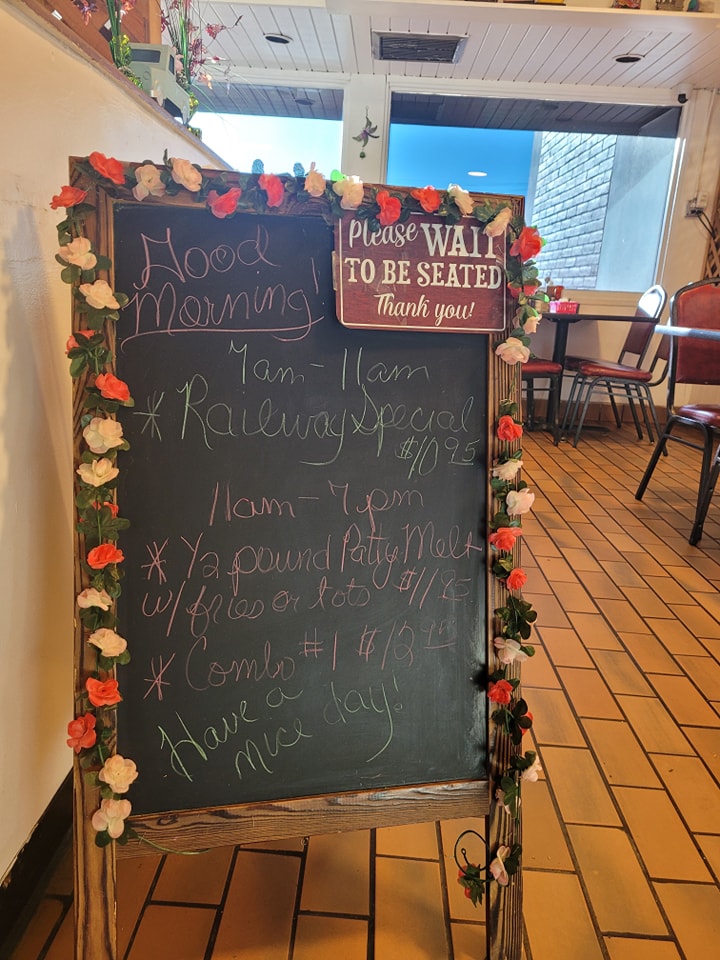 Good
Morning!
Please WAIT
TO BE SEATED
Thank you!
7am - 11am
* Railway Special
$10.95
11am - 7pm
* 1/2 pound Patty Melt
w/ fries or tots $11.95
* Combo #1 $12.95
Have a
nice day!